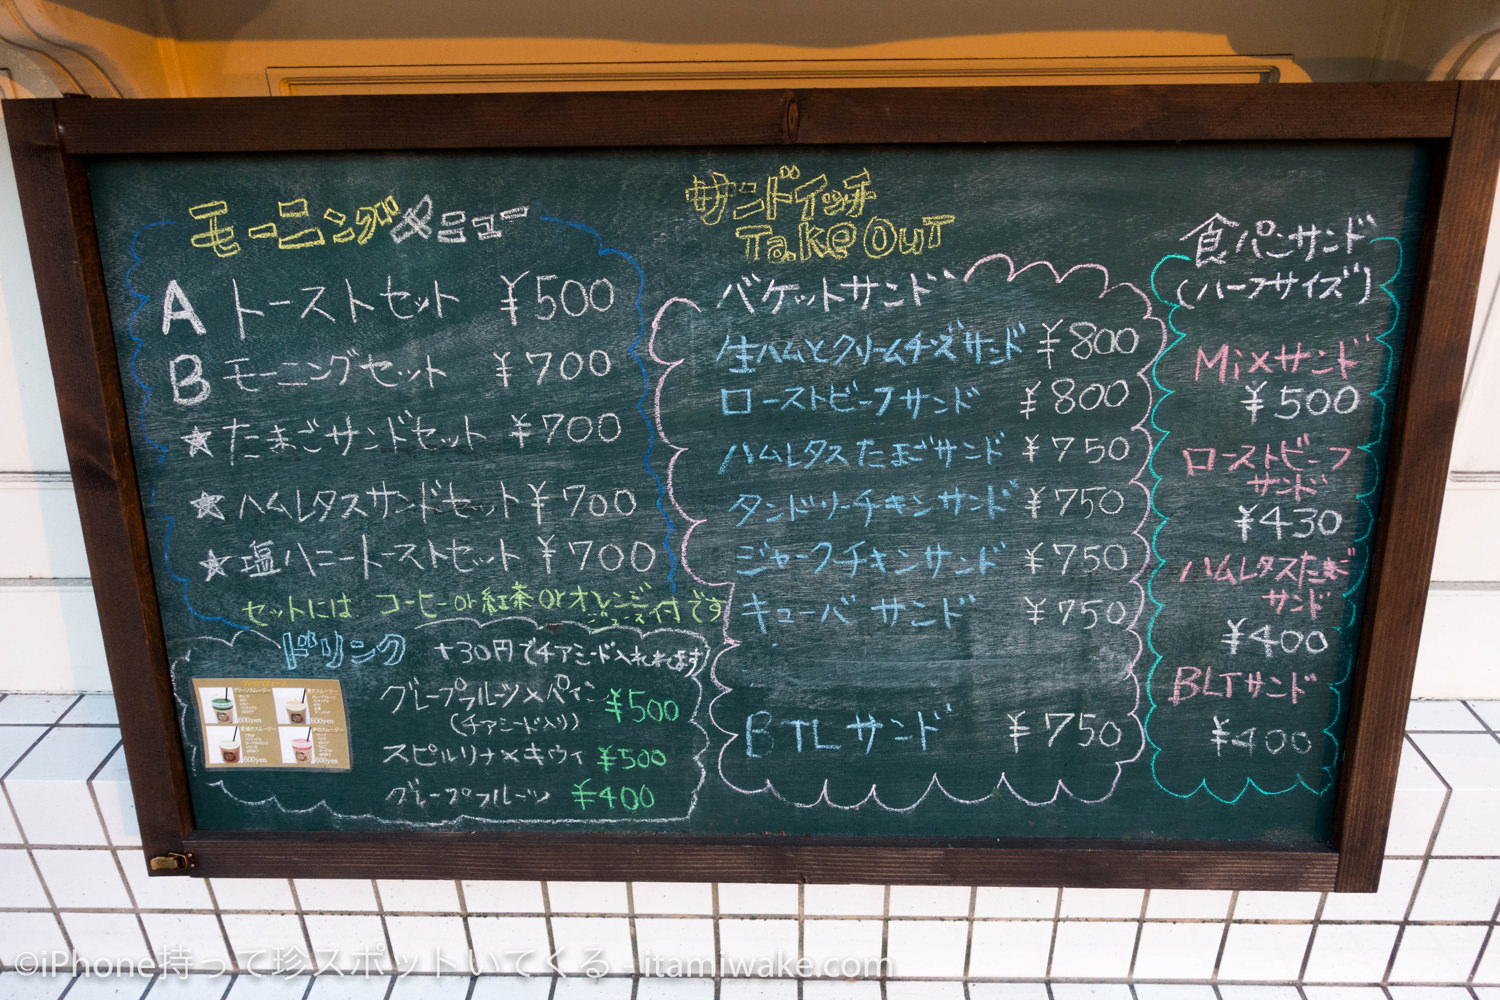 モーニングメニュー
A トーストセット ¥500
B モーニングセット ¥700
★たまごサンドセット ¥700
★ハムレタスサンドセット ¥700
★塩ハニートーストセット ¥700
セットには コーヒーor紅茶orオレンジジュース付です
ドリンク +30円でチアシード入れれます
グレープフルーツ×パイン ¥500
(チアシード入り)
スピルリナ×キウイ ¥500
グレープフルーツ ¥400
600yen
600yen
600yen
600yen
サンドイッチ
Take OuT
バケットサンド
生ハムとクリームチーズサンド ¥800
ローストビーフサンド ¥800
ハムレタスたまごサンド ¥750
タンドリーチキンサンド ¥750
ジャークチキンサンド ¥750
キューバサンド ¥750
BTLサンド ¥750
食パンサンド
(ハーフサイズ)
Mixサンド
¥500
ローストビーフ
サンド
¥430
ハムレタスたまご
サンド
¥400
BLTサンド
¥400
©iPhone持って珍スポットいてくる - itamiwake.com